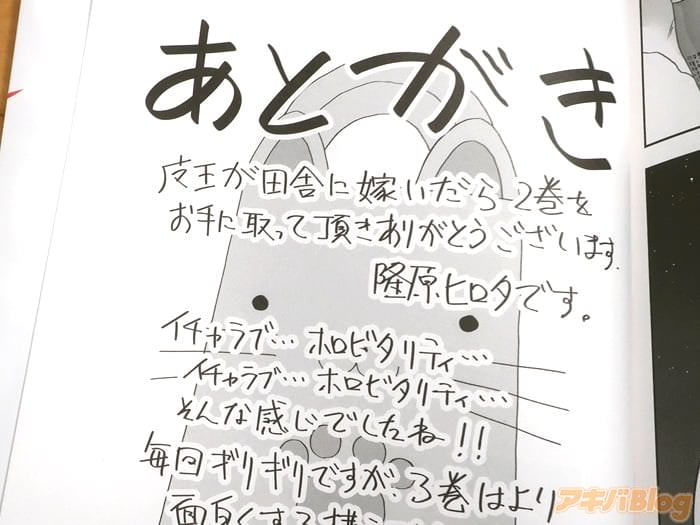 あとがき
皮王が田舎に嫁いだら2巻を
お手に取って頂きありがとうございます。
隆原ヒロタです。
イチャラブ…ホロビタリティ…
イチャラブ…ホロビタリティ…
そんな感じでしたね!!
毎回ギリギリですが、3巻はより
面白くする
アキバBlog